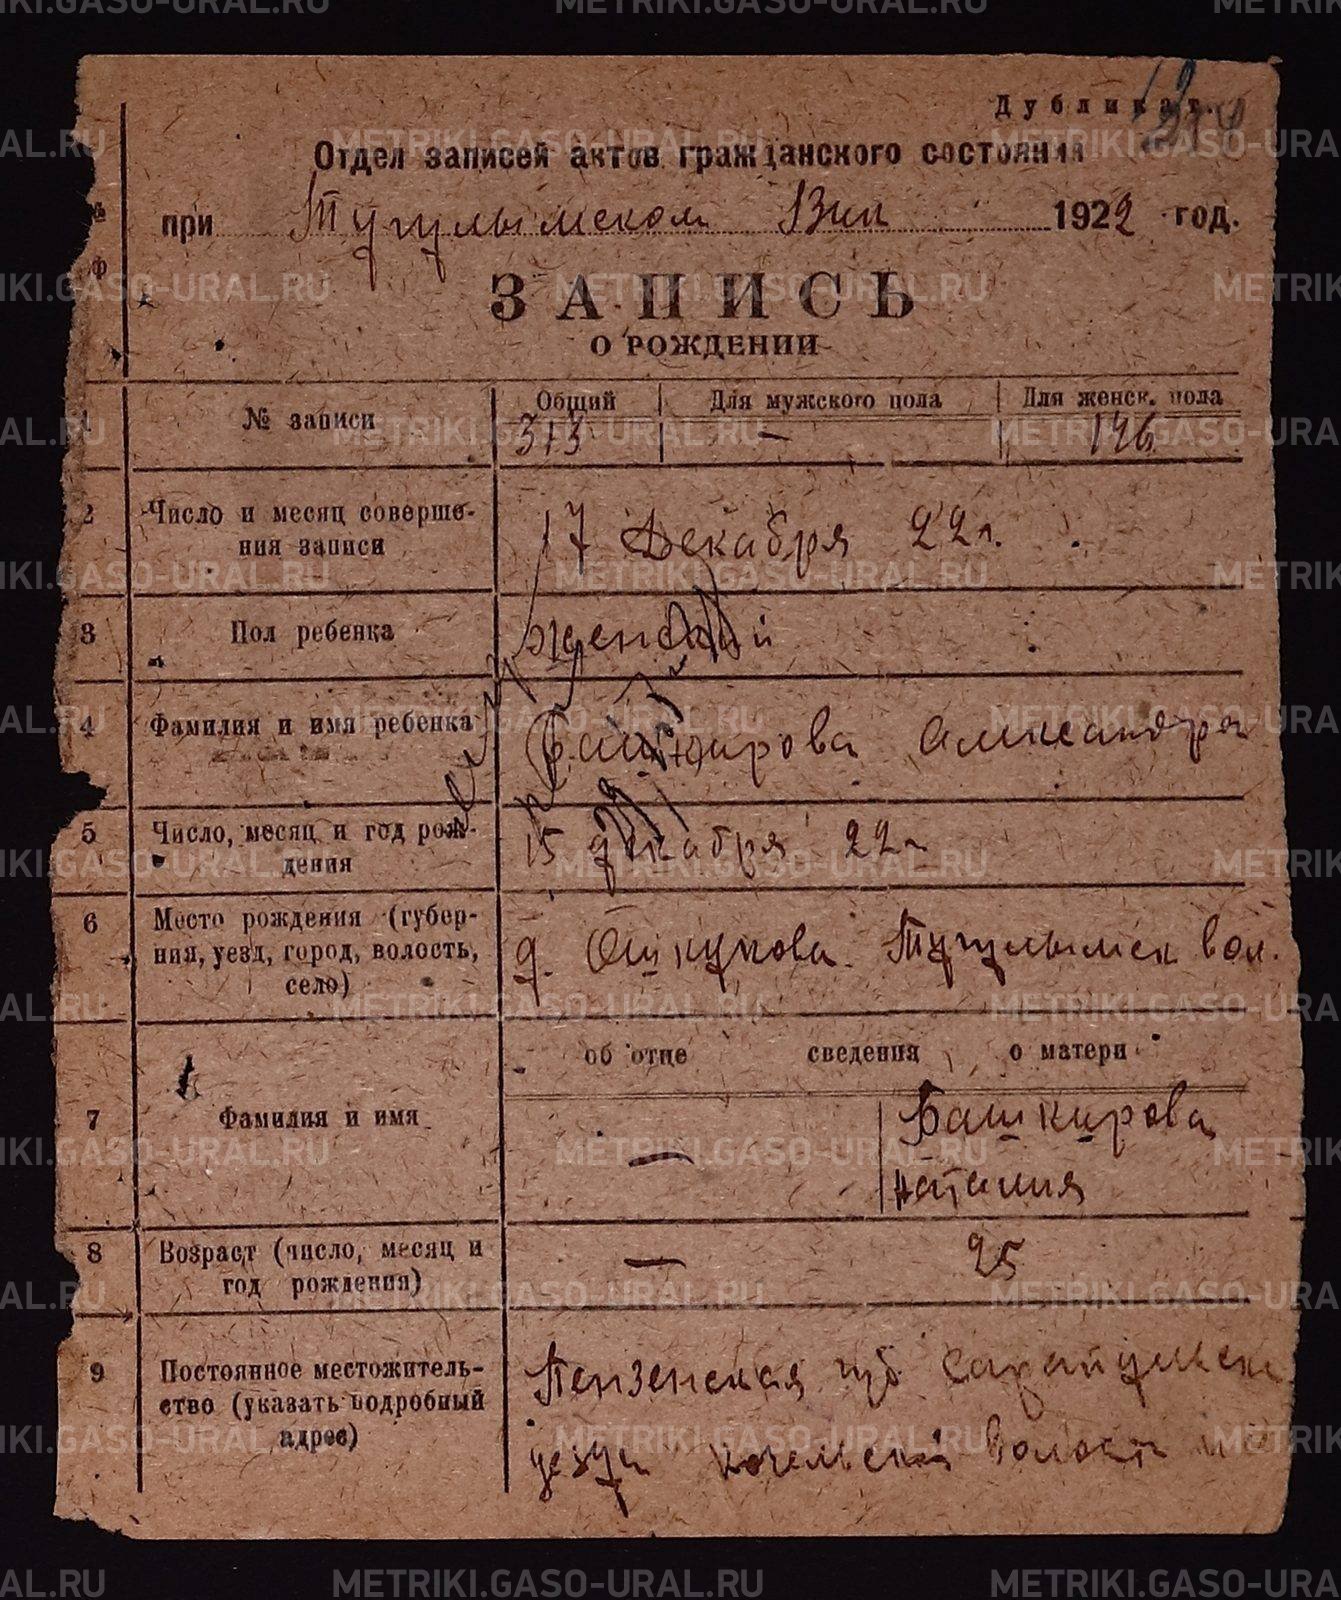 Дубликат.
Отдел записей актов гражданского состояния
при Тугулымском Вик 1922 год.
ЗАПИСЬ
О РОЖДЕНИИ
1 № записи Общий Для мужского пола Для женск. пола
373 — 146
2 Число и месяц соверше-
ния записи 17 Декабря 22 г.
3 Пол ребенка женский
4 Фамилия и имя ребенка Башкирова Александра
5 Число, месяц и год рож-
дения 15 декабря 22 г
6 Место рождения (губер-
ния, уезд, город, волость,
село) д. Ошкукова Тугулымск вол.
об отце сведения о матери
7 Фамилия и имя — Башкирова
Наталия
8 Возраст (число, месяц и
год рождения) — 25
9 Постоянное местожитель-
ство (указать подробный
адрес) Пензенская губ
уезда волости
METRIKI.GASO-URAL.RU